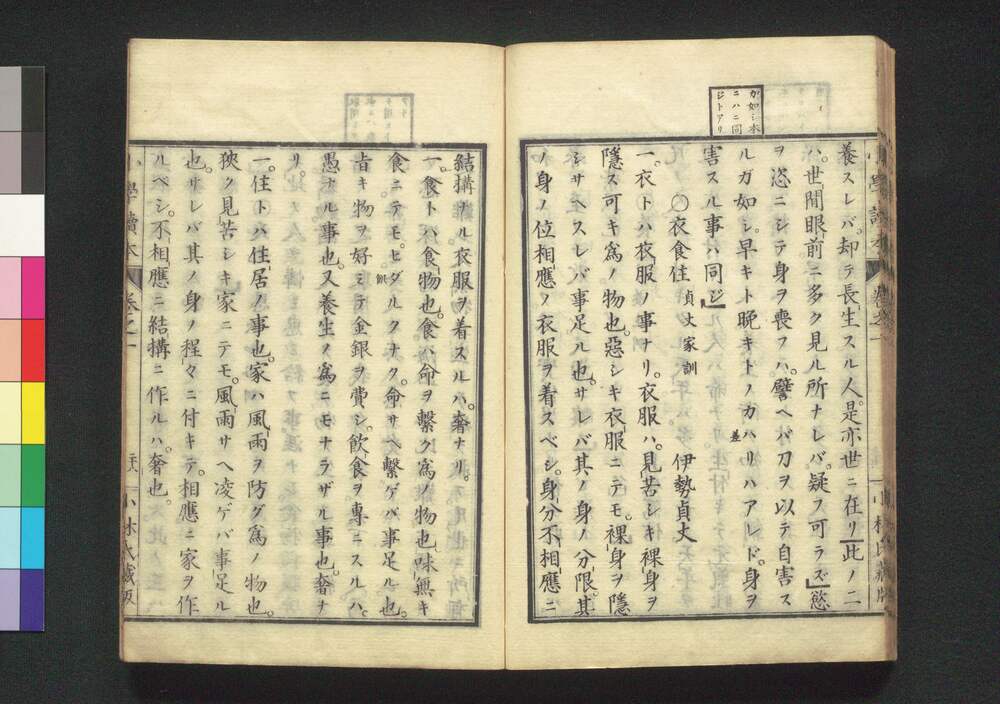 が如シ本
ニハ二同
ジトアリ
養スレバ。却テ長生スル人。是亦世ニ在リ此ノ二
ハ。世間眼前ニ多ク見ル所ナレバ。疑フ可ラズ」慾
ヲ恣ニシテ身ヲ喪フハ。譬ヘバ刀ヲ以テ自害ス
ルガ如シ。早キト晩キトノカハリハアレド。身ヲ
差
害スル事ハ同ジ」
○衣食住 貞丈家訓 伊勢貞丈
一。衣トハ衣服ノ事ナリ。衣服ハ。見苦シキ裸身ヲ
隱ス可キ爲ノ物也。惡シキ衣服ニテモ。裸身ヲ隱
シサヘスレバ事足ル也。サレバ其ノ身ノ分限。其
ノ身ノ位相應ノ衣服ヲ着スベシ。身分不相應ニ
結構ナル衣服ヲ着スルハ。奢ナリ。
一。食トハ食物也。食ハ命ヲ繫ク爲ノ物也。味無キ
食ニテモ。ヒダルクナク。命サヘ繫ゲバ事足ル也。
飢
旨キ物ヲ好ミテ金銀ヲ費シ。飮食ヲ專ニスルハ。
愚ナル事也。又養生ノ爲ニモナラザル事也。奢ナ
リ。
一。住トハ住居ノ事也。家ハ風雨ヲ防グ爲ノ物也。
狹ク見苦シキ家ニテモ。風雨サヘ凌ゲバ事足ル
也。サレバ其ノ身ノ程々ニ付キテ。相應ニ家ヲ作
ルベシ。不相應ニ結構ニ作ルハ。奢也。
小學讀本 卷之一 小林氏藏版